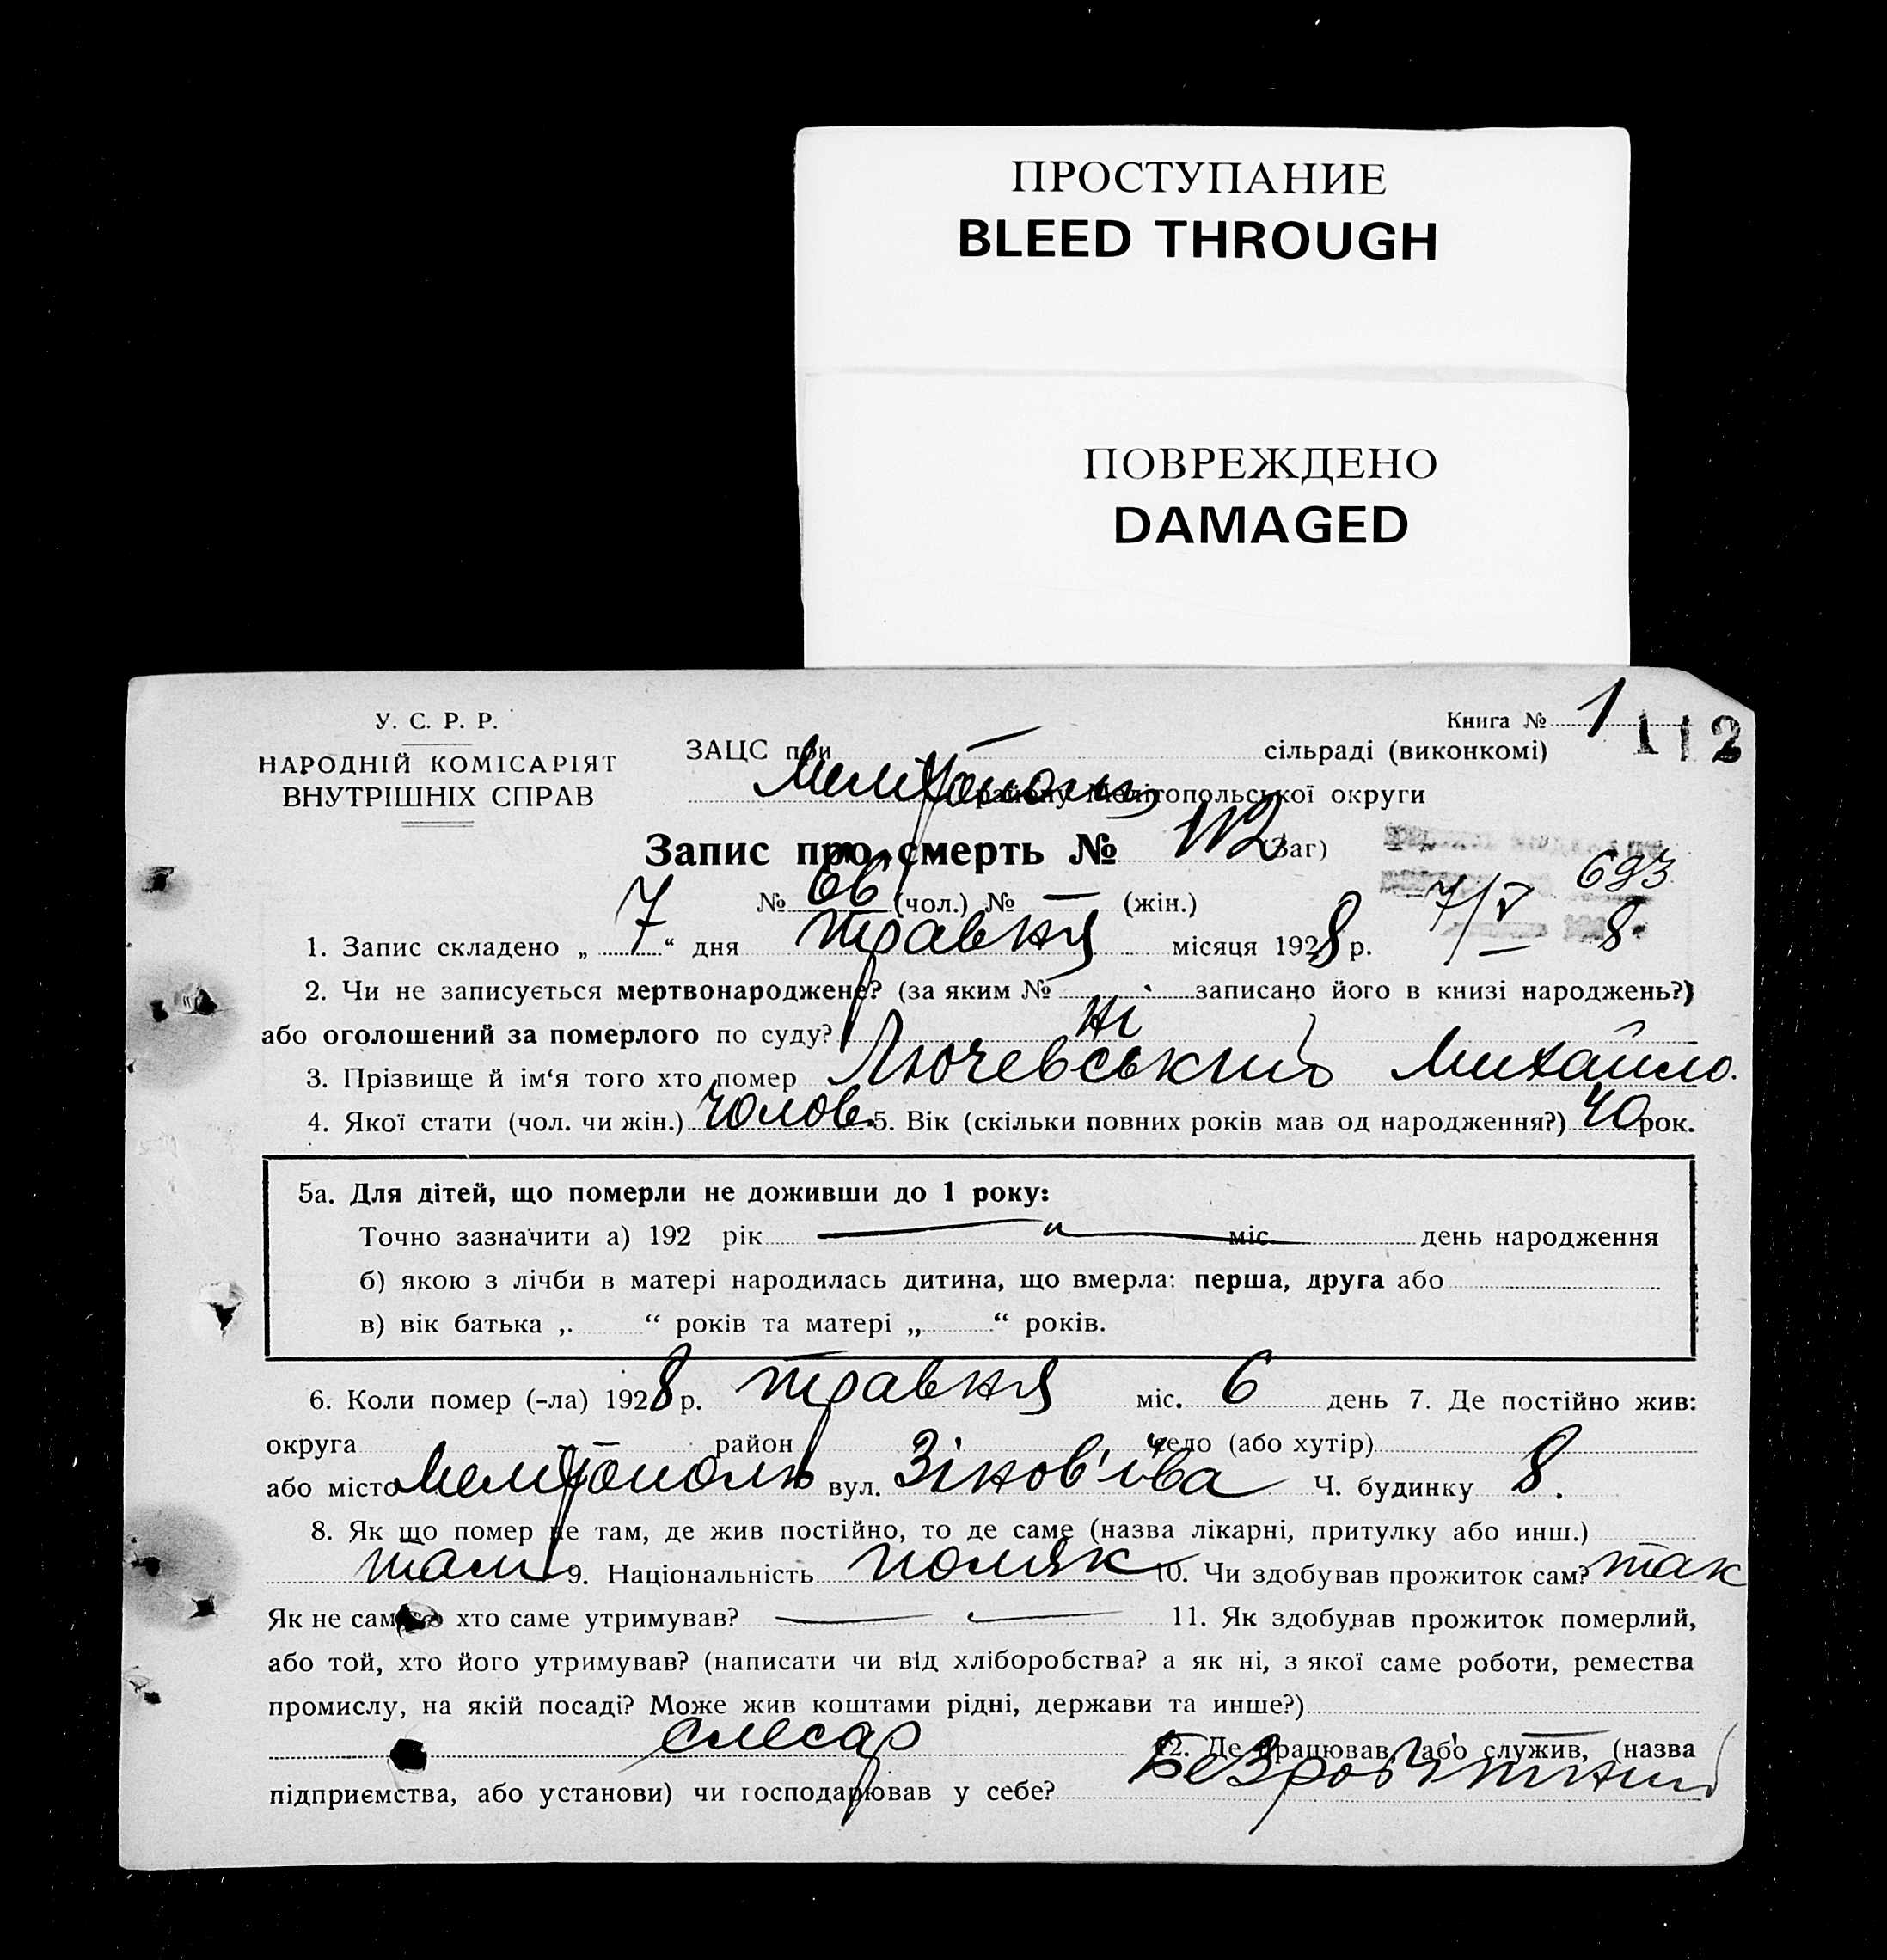 ПРОСТУПАНИЕ
BLEED THROUGH
ПОВРЕЖДЕНО
DAMAGED
У. С. Р. Р.
НАРОДНІЙ КОМІСАРІЯТ
ВНУТРІШНІХ СПРАВ
Книга № 1
112
ЗАЦС при сільраді (виконкомі)
Мелітополь району Мелітопольської округи
Запис про смерть № 112 (Заг)
693
№ 66 (чол.) № — (жін.)
7/V 8
1. Запис складено „ 7 “ дня травня місяця 1928 р.
2. Чи не записується мертвонароджене? (за яким № записано його в книзі народжень?)
або оголошений за померлого по суду? ні
3. Прізвище й ім‘я того хто помер Лючевський Михайло.
4. Якої стати (чол. чи жін.) чолов. 5. Вік (скільки повних років мав од народження?) 40 рок.
5а. Для дітей, що померли не доживши до 1 року:
Точно зазначити а) 192 рік міс. день народження
б) якою з лічби в матері народилась дитина, що вмерла: перша, друга або
в) вік батька „ “ років та матері „ “ років.
6. Коли помер (-ла) 1928 р. травня міс. 6 день 7. Де постійно жив:
округа район село (або хутір)
або місто Мелітополь вул. Зінов'їва Ч. будинку 8.
8. Як що помер не там, де жив постійно, то де саме (назва лікарні, притулку або инш.)
там 9. Національність поляк 10. Чи здобував прожиток сам? так
Як не сам, то хто саме утримував? — — 11. Як здобував прожиток померлий,
або той, хто його утримував? (написати чи від хліборобства? а як ні, з якої саме роботи, ремества
промислу, на якій посаді? Може жив коштами рідні, держави та инше?)
слесар 12. Де працював, або служив, (назва
підприємства, або установи) чи господарював у себе? Безробітний